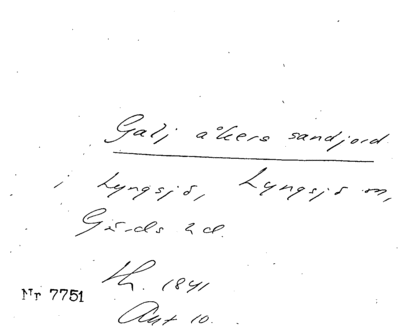 Galj åkers sandjord
i Lyngsjö, Lyngsjö sn,
Gärds hd.
th. 1841
Nr 7751
Akt 10.